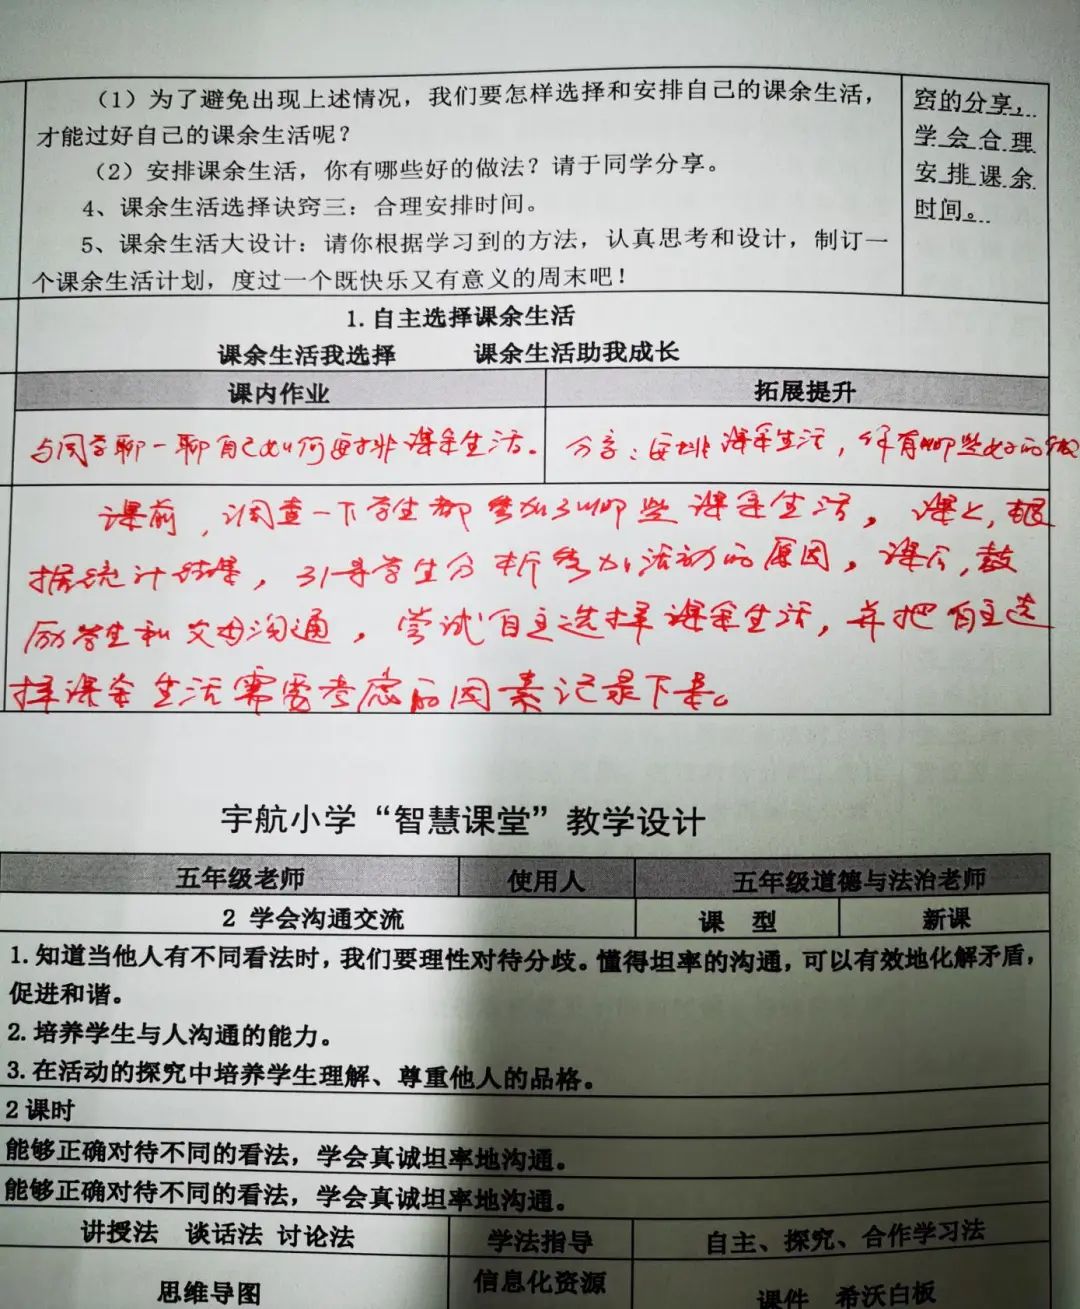 （1）为了避免出现上述情况，我们要怎样选择和安排自己的课余生活，
才能过好自己的课余生活呢？
（2）安排课余生活，你有哪些好的做法？请于同学分享。
4、课余生活选择诀窍三：合理安排时间。
5、课余生活大设计：请你根据学习到的方法，认真思考和设计，制订一
个课余生活计划，度过一个既快乐又有意义的周末吧！
窍的分享，
学会合理
安排课余
时间。
1.自主选择课余生活
课余生活我选择 课余生活助我成长
课内作业 拓展提升
与同学聊一聊自己如何安排课余生活。
分享：安排课余生活，你有哪些好的做
课前，调查一下学生都参加了哪些课余生活。课上，根
据统计结果，引导学生分析参加活动的原因。课后，鼓
励学生和父母沟通，尝试自主选择课余生活，并把自主选
择课余生活需要考虑的因素记录下来。
宇航小学“智慧课堂”教学设计
五年级老师 使用人 五年级道德与法治老师
2 学会沟通交流 课 型 新课
1.知道当他人有不同看法时，我们要理性对待分歧。懂得坦率的沟通，可以有效地化解矛盾，
促进和谐。
2.培养学生与人沟通的能力。
3.在活动的探究中培养学生理解、尊重他人的品格。
2 课时
能够正确对待不同的看法，学会真诚坦率地沟通。
能够正确对待不同的看法，学会真诚坦率地沟通。
讲授法 谈话法 讨论法 学法指导 自主、探究、合作学习法
思维导图 信息化资源 课件 希沃白板